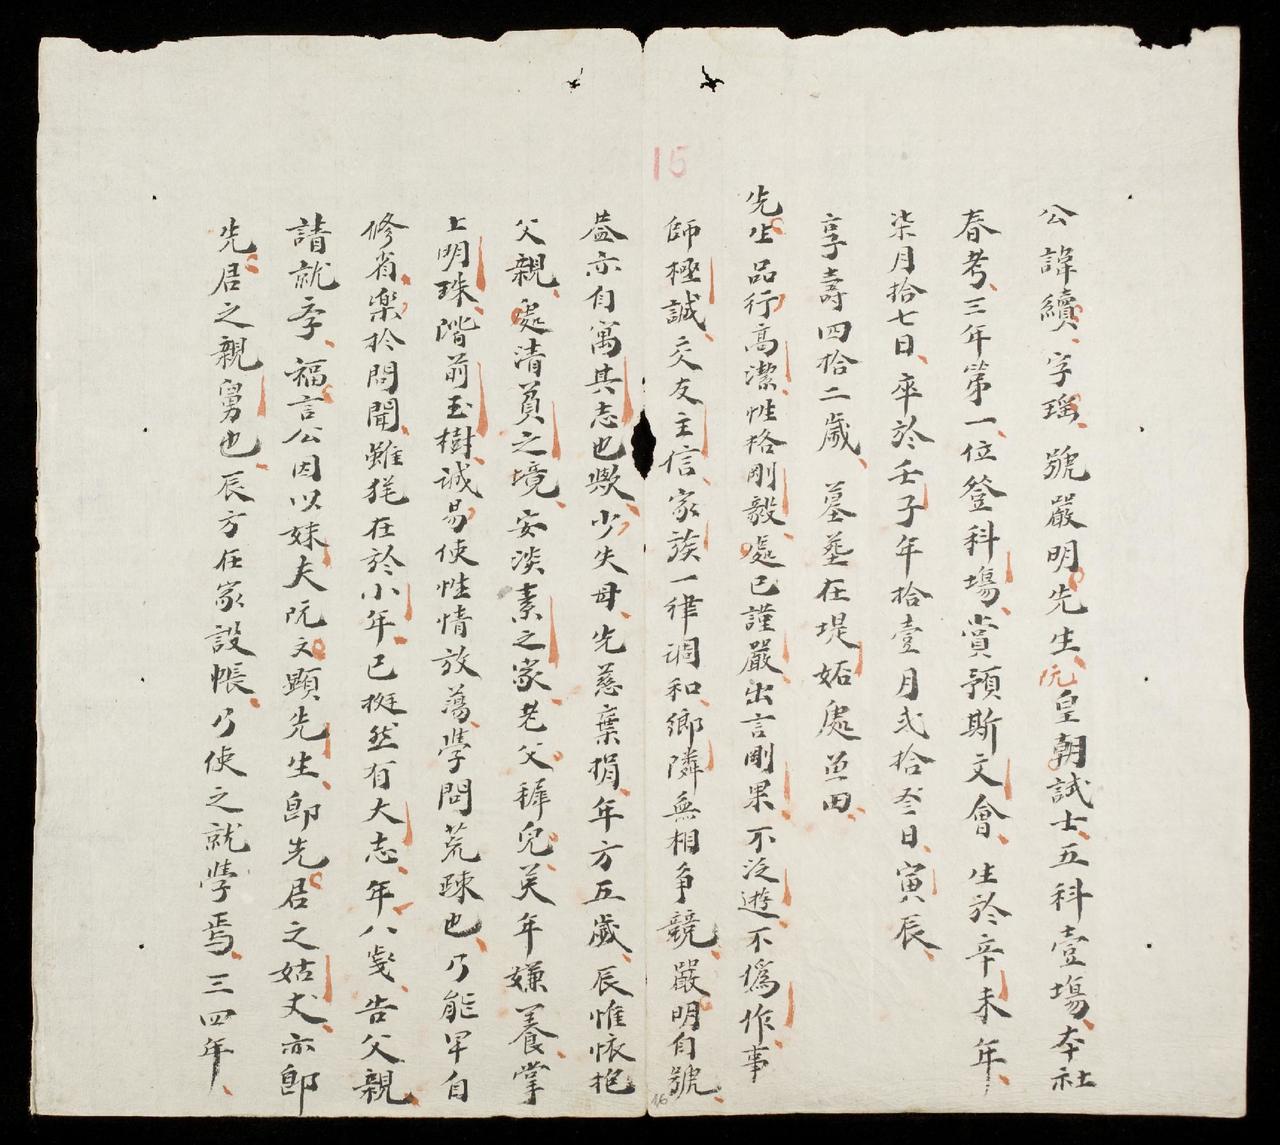 15
公諱續字瑶號嚴明先生阮皇朝試士五科壹塲本社
春考三年第一位登科塲賞預斯文會生於辛未年
柒月拾七日卒於壬子年拾壹月弍拾叁日寅辰
享壽四拾二歲墓塟在堤姤處並田
先生品行高潔性格剛毅處已謹嚴出言剛果不泛遊不僞作事
師極誠交友主信家族一律調和鄉隣無相争競嚴明自號
葢亦自寓其志也歟少失母先慈棄捐年方五歲辰惟依抱
父親處清貧之境安淡素之家老父穉兒芙年嫌養掌
上明珠階前玉樹诚易使性情放蕩學問荒踈也乃能早自
修省樂扵問聞雖㹠在於小年已挺然有大志年八歲告父親
請就季福言公因以妹夫阮文顕先生卽先居之姑丈亦卽
先居之親舅也辰方在家設帳乃使之就學焉三四年
16